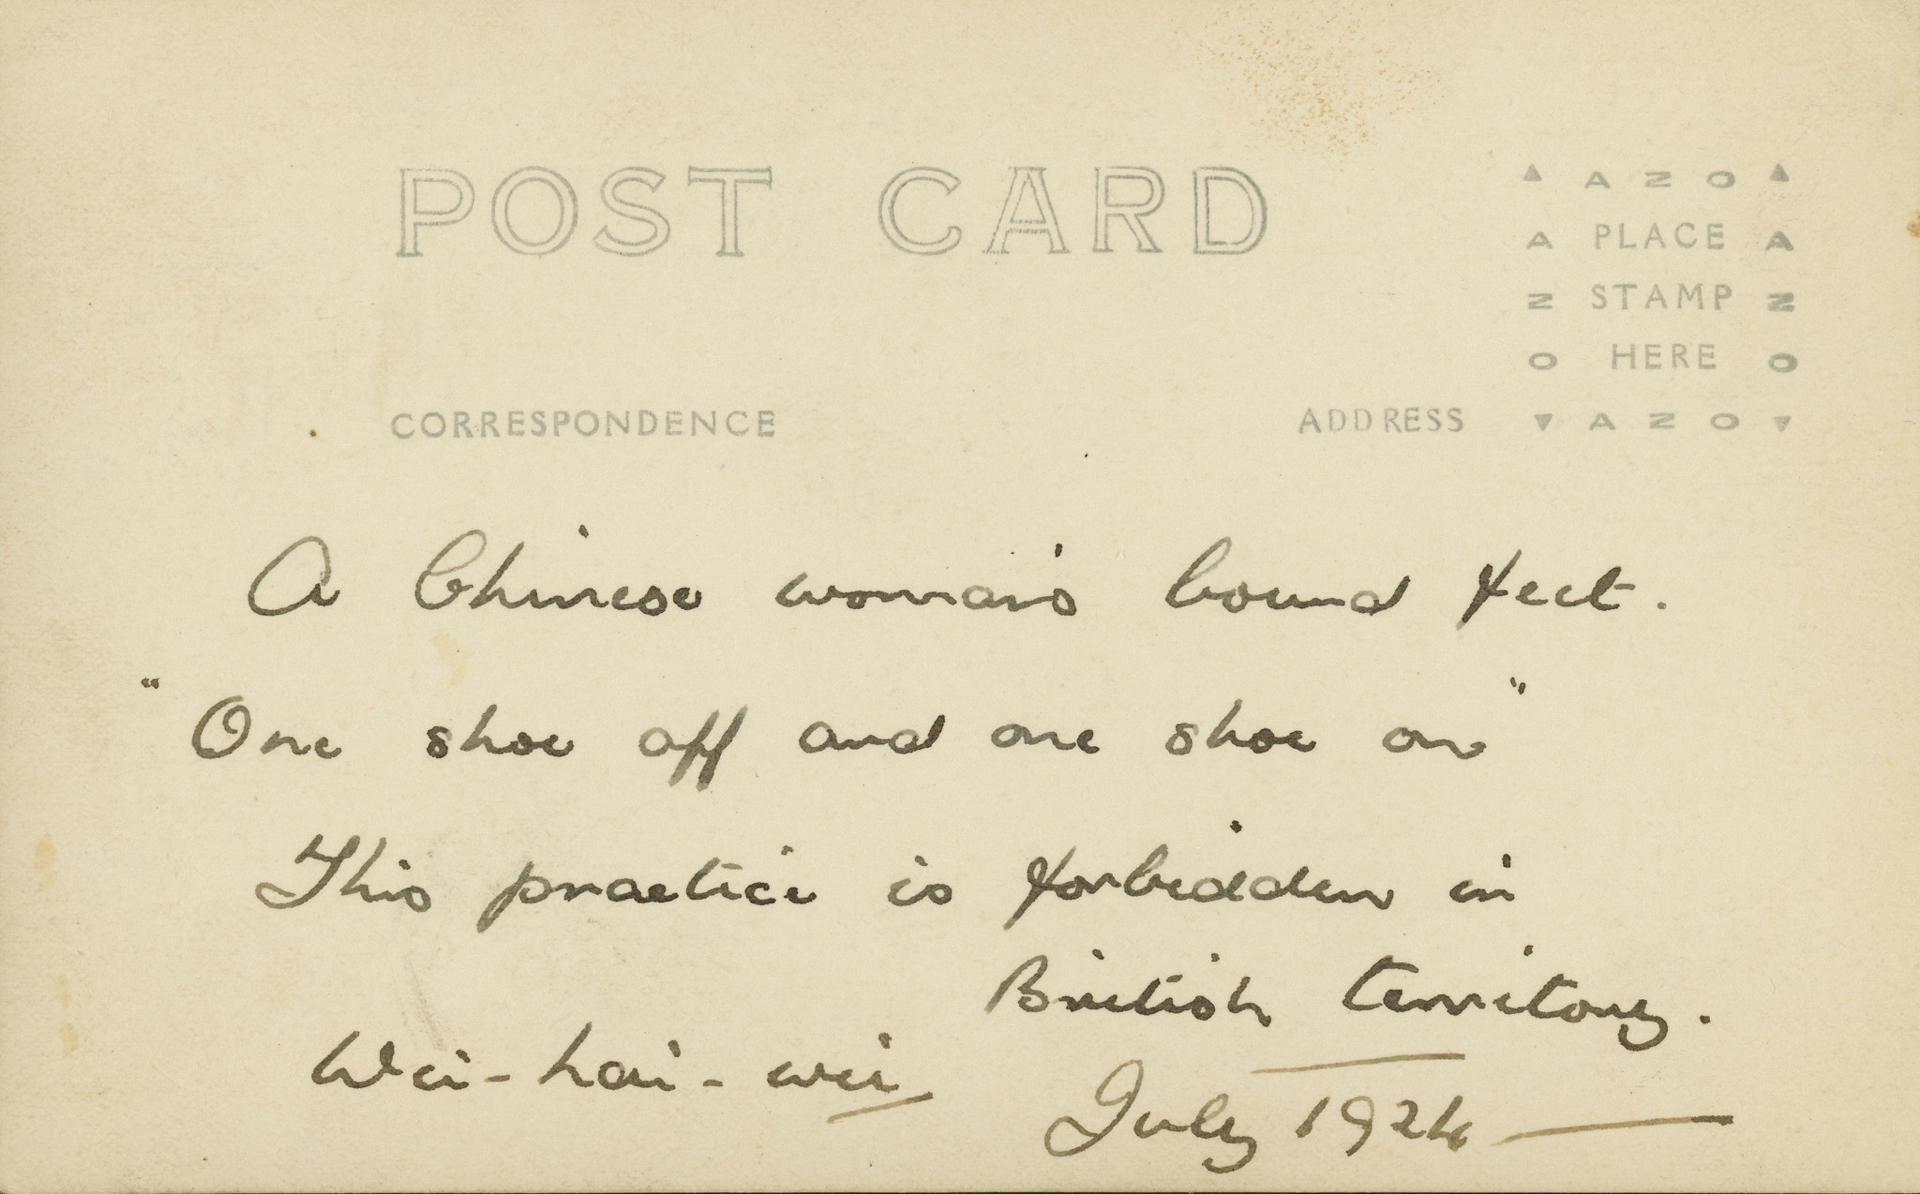 POST CARD
▲ A Z O ▲
A PLACE A
Z STAMP Z
O HERE O
▼ A Z O ▼
CORRESPONDENCE
ADDRESS
A Chinese woman's bound feet.
"One shoe off and one shoe on"
This practice is forbidden in
British Territory.
Wei-hai-wei
July 1924